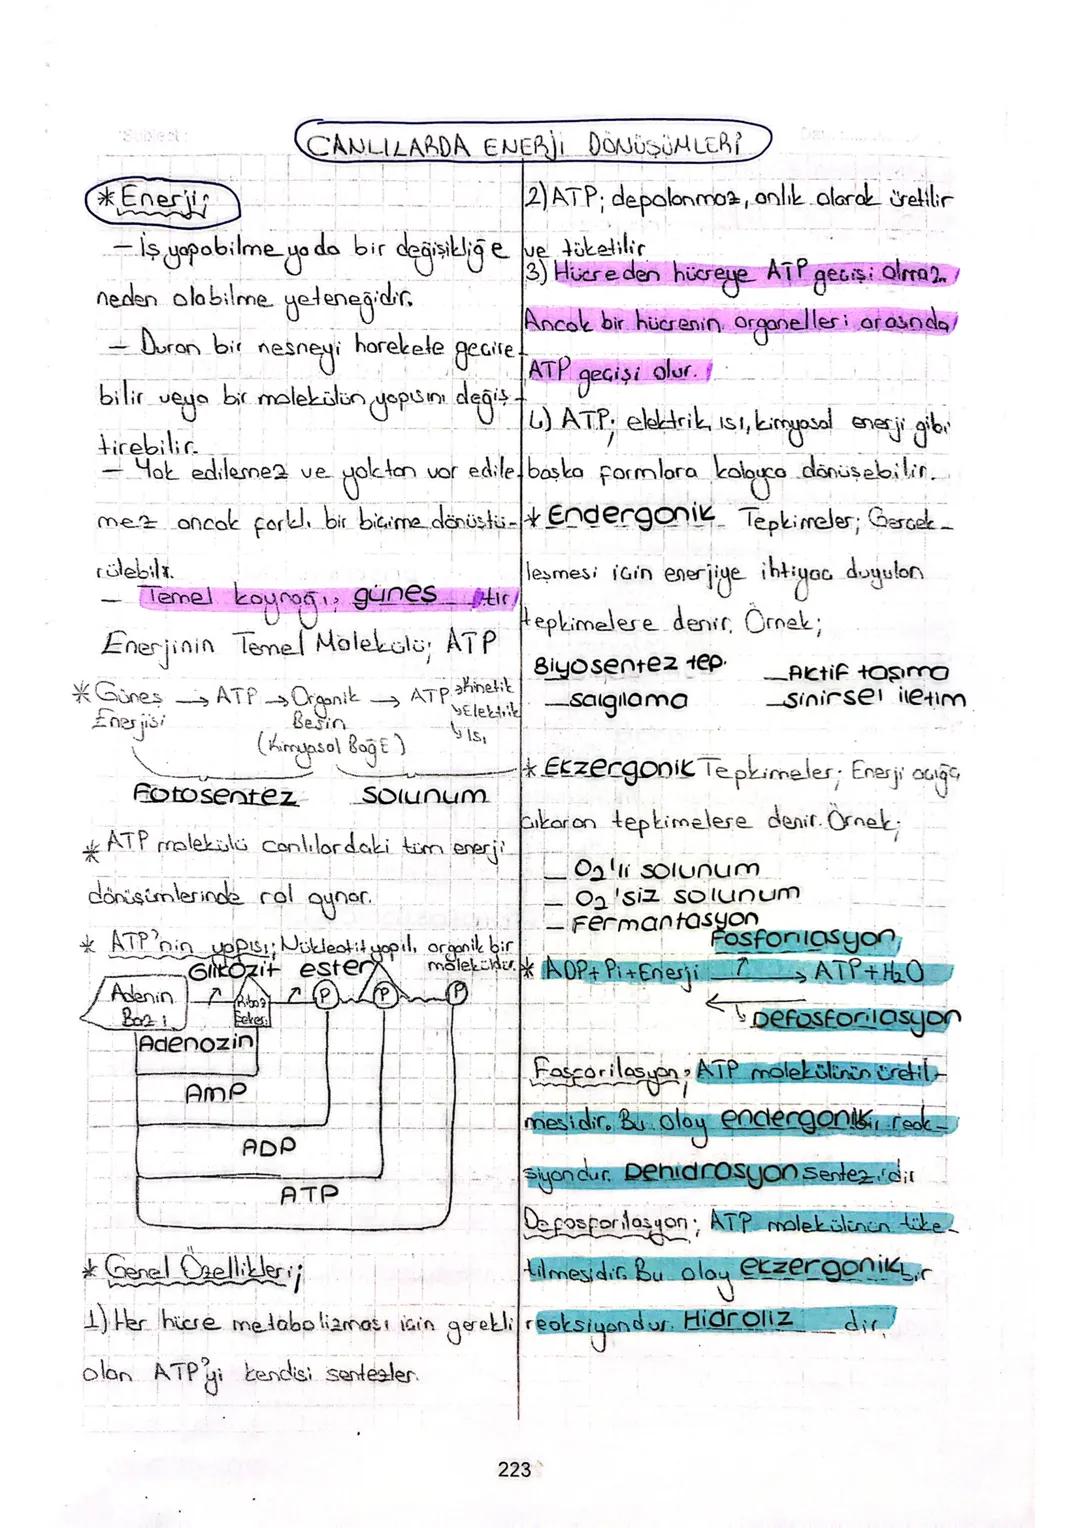 CANLILARDA ENERJİ DÖNÜŞÜMLERİ
* Enerji;
– İş yapabilme ya da bir değişikliğe
neden olabilme yeteneğidir.
– Duran bir nesneyi harekete geçire-
bilir veya bir molekülün yapısını değiş-
tirebilir.
– Yok edilemez ve yoktan var edile-
mez ancak farklı bir biçime dönüştü-
rülebilir.
– Temel kaynağı, güneş tir
Enerjinin Temel Molekülü; ATP
* Güneş → ATP → Organik → ATP → Kinetik
Enerjisi Besin → Elektrik
(Kimyasal Bağ E) → Isı
Fotosentez Solunum
* ATP molekülü canlılardaki tüm enerji
dönüşümlerinde rol oynar.
* ATP'nin yapısı; Nükleotit yapılı organik bir
moleküldür.
Glikozit ester
Adenin Bazı Riboz Şekeri P P P
Adenozin
AMP
ADP
ATP
* Genel Özellikleri;
1) Her hücre metabolizması için gerekli
olan ATP'yi kendisi sentezler.
2) ATP; depolanmaz, anlık olarak üretilir
ve tüketilir
3) Hücreden hücreye ATP geçişi olmaz.
Ancak bir hücrenin organelleri arasında
ATP geçişi olur.
4) ATP; elektrik, ısı, kimyasal enerji gibi
başka formlara kolayca dönüşebilir.
* Endergonik Tepkimeler; Gerçek-
leşmesi için enerjiye ihtiyaç duyulan
tepkimelere denir. Örnek;
Biyosentez tep. – Aktif taşıma
– salgılama – sinirsel iletim
* Ekzergonik Tepkimeler; Enerji açığa
çıkaran tepkimelere denir. Örnek;
– O2'li solunum
– O2'siz solunum
– Fermantasyon
Fosforilasyon
* ADP + Pi + Enerji → ATP + H2O
Defosforilasyon
Fosforilasyon; ATP molekülünün üretil-
mesidir. Bu olay endergonik bir reak-
siyondur. Dehidrasyon sentezidir
Defosforilasyon; ATP molekülünün tüke-
tilmesidir. Bu olay ekzergonik bir
reaksiyondur. Hidroliz dir.
223